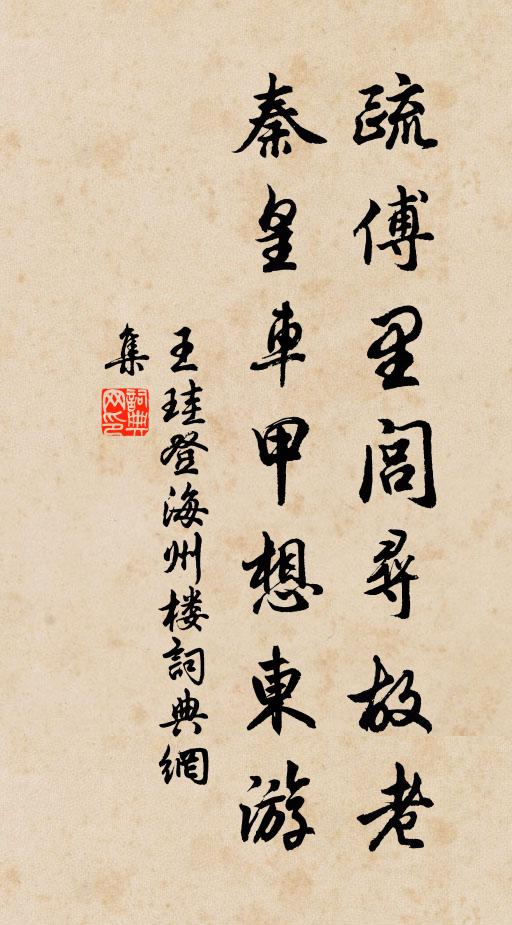 疏傅里閭尋故老
秦皇車甲想東游
王珪登海州楼詞典網
集
詞典
网印